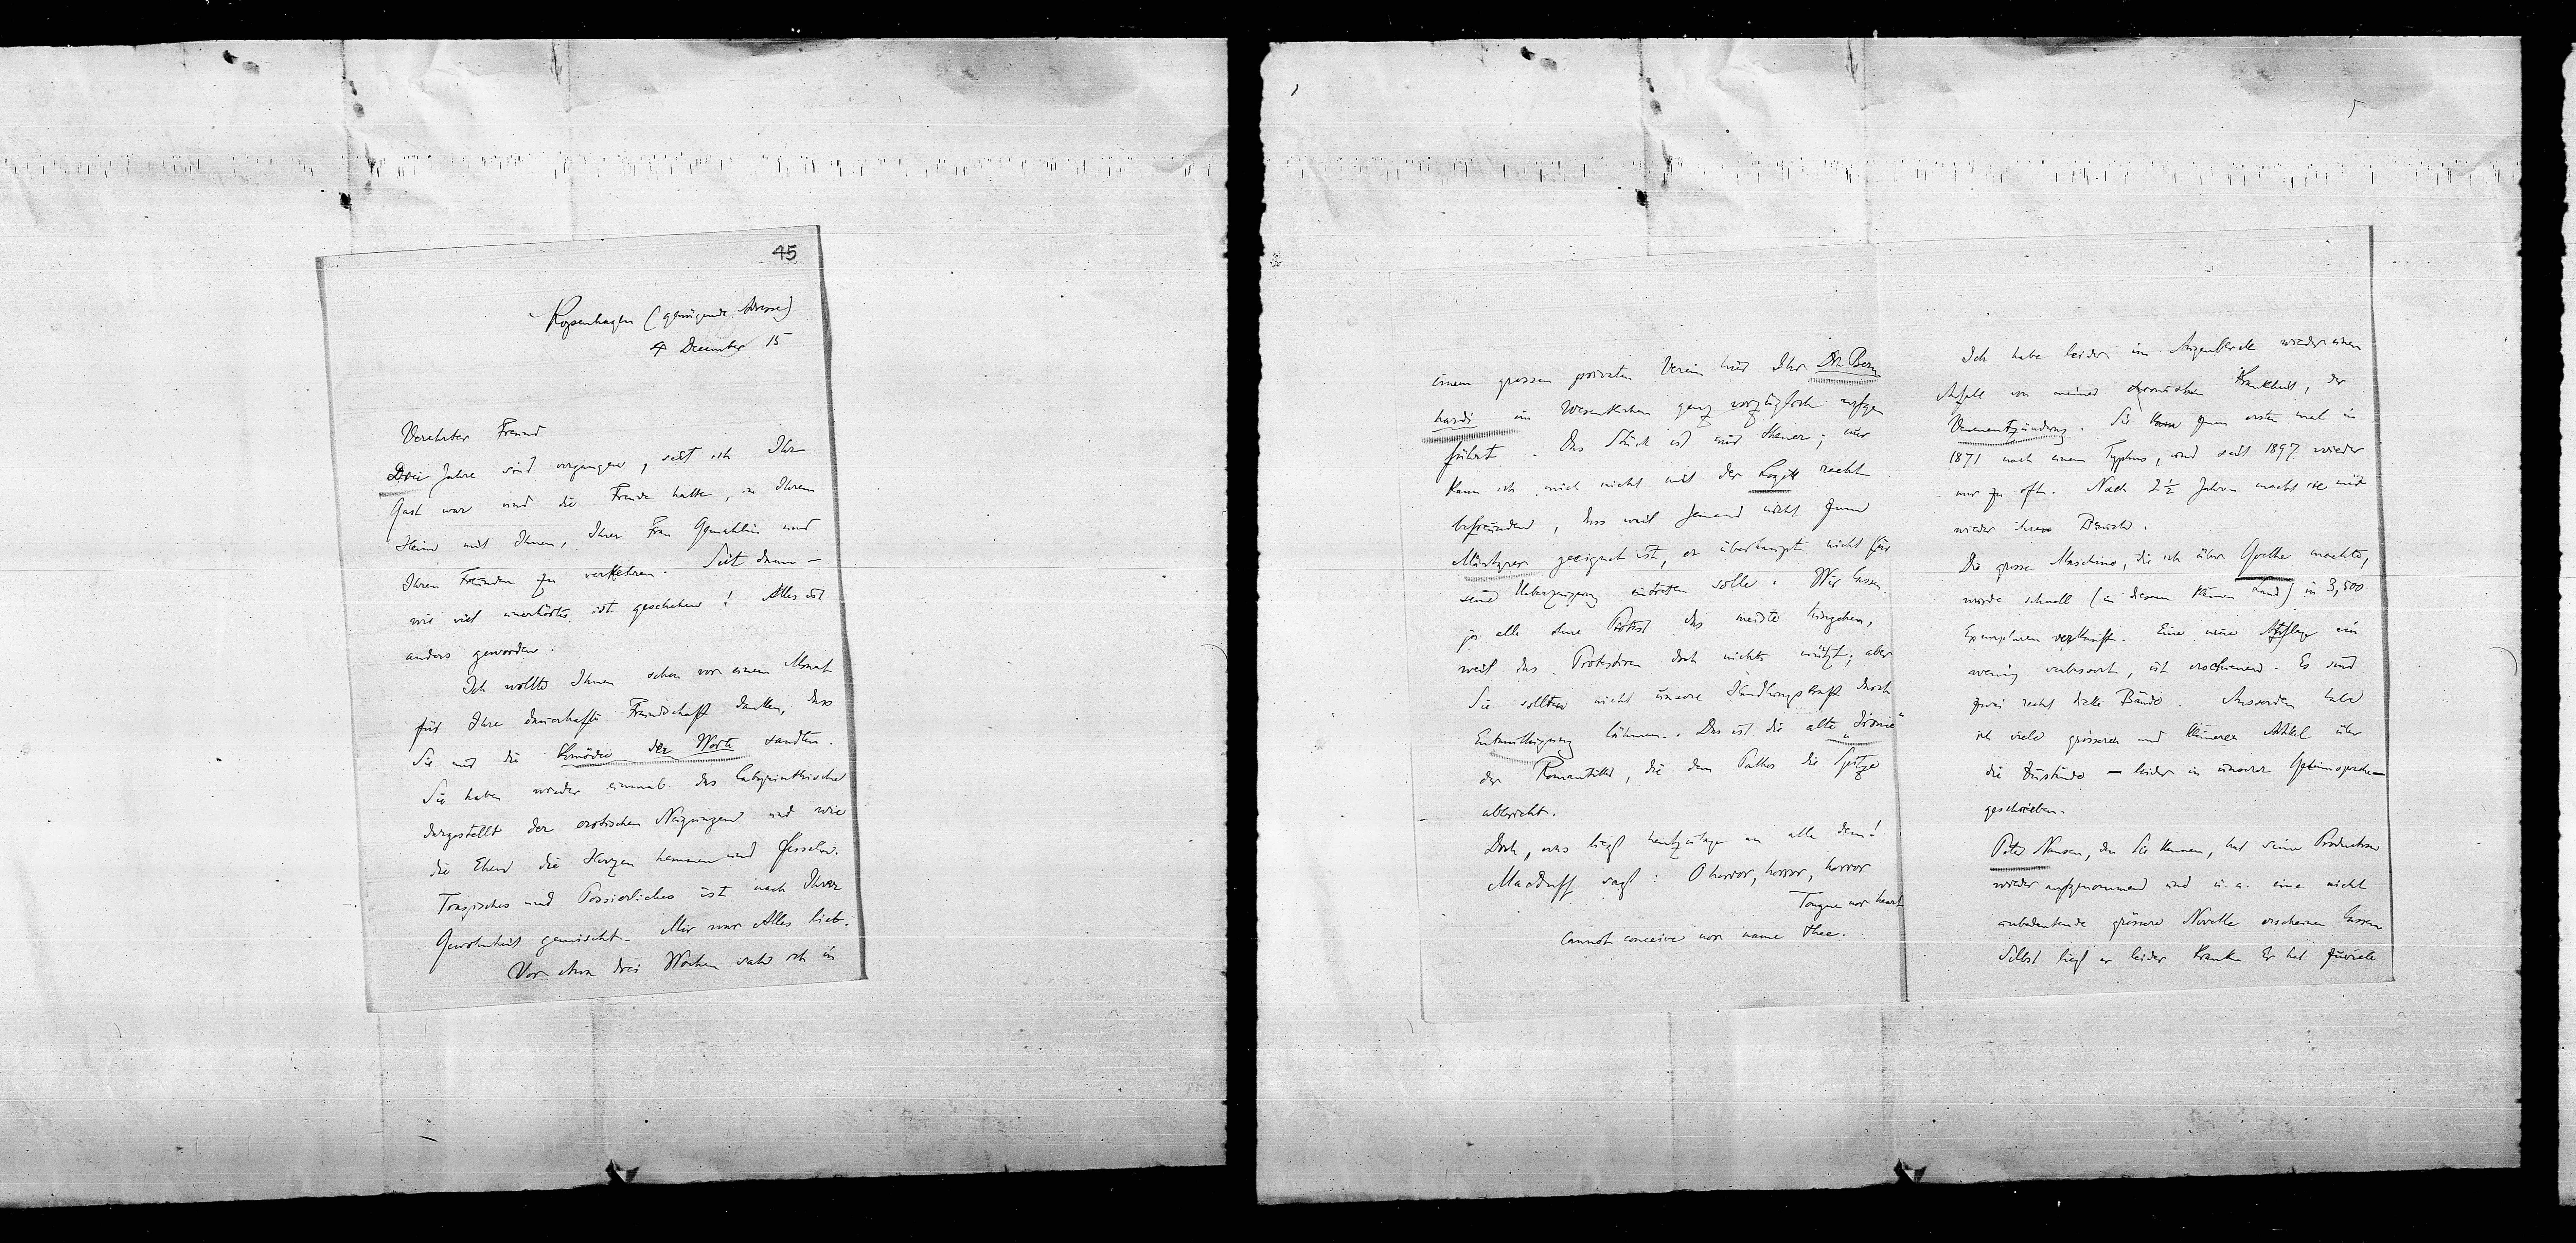 45
Kopenhagen (genügende Adresse)
4 December 15
Verehrter Freund
Drei Jahre sind vergangen, seit ich Ihr
Gast war und die Freude hatte, in Ihrem
Heim mit Ihnen, Ihrer Frau Gemahlin und
Ihren Freunden zu verkehren. Seit dann —
wie viel unerhörtes ist geschehen! Alles ist
anders geworden.
Ich wollte Ihnen schon vor einem Monat
für Ihre dauerhafte Freundschaft danken, dass
Sie mir die Komödie der Worte sandten.
Sie haben wieder einmal das Labyrinthische
dargestellt der erotischen Neigungen und wie
die Ehen die Herzen hemmen und fesseln.
Tragisches und Possierliches ist nach Ihrer
Gewohnheit gemischt. Mir war Alles lieb.
Vor etwa drei Wochen sah ich in
einem grossen privaten Verein hier Ihr Dr. Bern
hardi im Wesentlichen ganz vorzüglich aufge
führt. Das Stück ist mir theuer; nur
kann ich mich nicht mit der Logik recht
befreunden, dass weil Jemand nicht zum
Märtyrer geeignet ist, er überhaupt nicht für
seine Ueberzeugung eintreten solle. Wir lassen
ja alle ohne Protest das meiste hingehen,
weil das Protestiren doch nichts nützt; aber
Sie sollten nicht unsere Handlungskraft durch
Entmuthigung lähmen. Das ist die alte „Ironie"
der Romantiker, die dem Pathos die Spitze
abbricht.
Doch, was liegt heutzutage an alle dem!
Macduff sagt: O horror, horror, horror
Tongue nor heart
Cannot conceive nor name thee.
Ich habe leider im Augenblicke wieder einen
Anfall von meiner chronischen Krankheit, der
Venenentzündung. Sie kam zum ersten mal in
1871 nach einem Typhus, und seit 1897 wieder
nur zu oft. Nach 2½ Jahren macht sie mir
wieder ihren Besuch.
Die grosse Maschine, die ich über Goethe machte,
wurde schnell (in diesem kleinen Land) in 3,500
Exemplaren verkauft. Eine neue Auflage ein
wenig verbessert, ist erschienen. Es sind
zwei recht dicke Bände. Ausserdem habe
ich viele grössere und kleinere Artikel über
die Zustände — leider in unserer Geheimsprache —
geschrieben.
Peter Nansen, den Sie kennen, hat seine Production
wieder aufgenommen und u. a. eine nicht
unbedeutende grössere Novelle erscheinen lassen
Selbst liegt er leider krank. Er hat zuviele